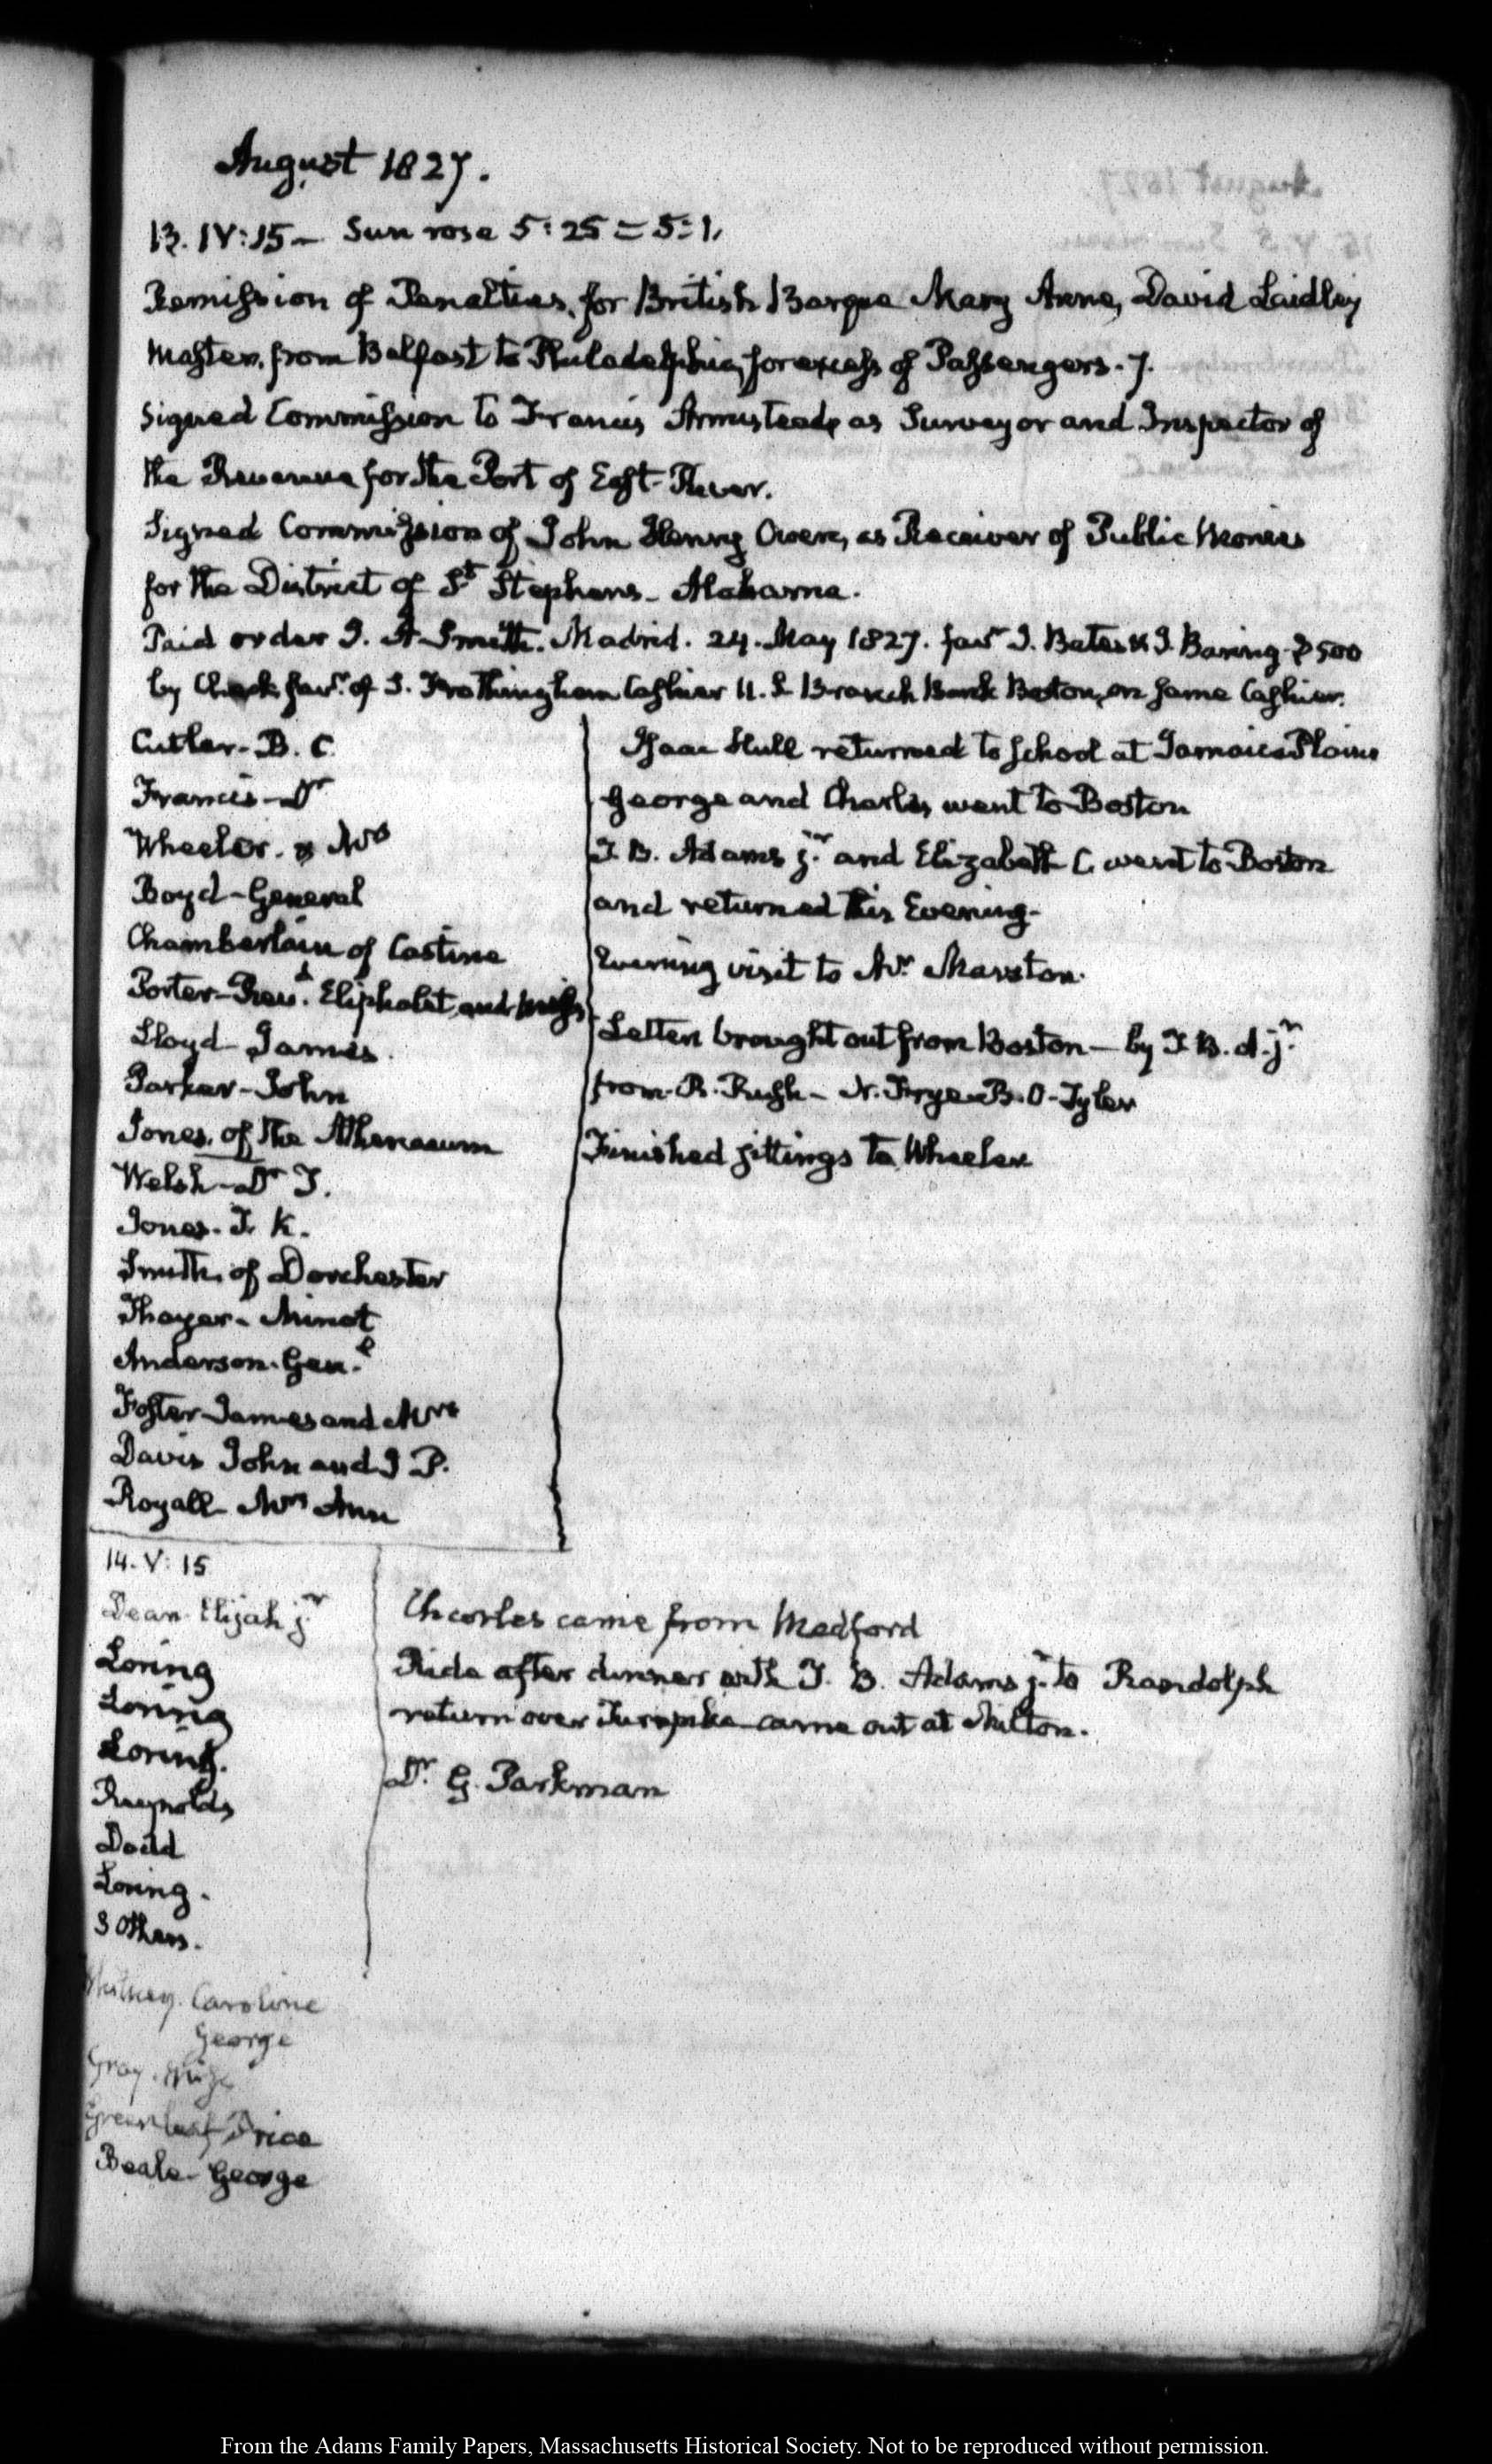 August 1827.
13. IV:15 — Sun rose 5:25 = 5:1.
Remission of Penalties, for British Barque Mary Anne, David Laidley
Master, from Belfast to Philadelphia, for excess of Passengers. 7.
Signed Commission to Francis Armistead, as Surveyor and Inspector of
the Revenue for the Port of East-River.
Signed Commission of John Henry Owen, as Receiver of Public Monies
for the District of St Stephens — Alabama.
Paid order J. A. Smith. Madrid. 24. May 1827. favr J. Bates & J. Baring. $500
by Check favr. of S. Frothingham Cashier U.S. Branch Bank Boston, on same Cashier.
Cutler — B. C.
Francis — Dr
Wheeler. & Mrs
Boyd — General
Chamberlain of Castine
Porter — Revd. Eliphalet, and Miss
Lloyd James.
Parker — John
Jones, of the Athenaeum
Welsh — Dr T.
Jones. T. K.
Smith, of Dorchester
Thayer — Minot
Anderson. Genl.
Foster James and Mrs
Davis John and J P.
Royall — Mrs Ann
Isaac Hull returned to School at Jamaica Plains
George and Charles went to Boston
T. B. Adams jr. and Elizabeth C. went to Boston
and returned this Evening.
Evening visit to Mr. Marston.
Letters brought out from Boston — by T. B. A. jr.
from R. Rush — N. Frye — B. O. Tyler
Finished sittings to Wheeler
14. V:15
Dean Elijah jr
Loring
Loring
Loring.
Reynolds
Dodd
Loring.
3 Others.
Whitney. Caroline
George
Gray. Miss
Greenleaf Price
Beale — George
Charles came from Medford
Ride after dinner with T. B. Adams jr. to Randolph
return over Turnpike came out at Milton.
Dr. G. Parkman
From the Adams Family Papers, Massachusetts Historical Society. Not to be reproduced without permission.